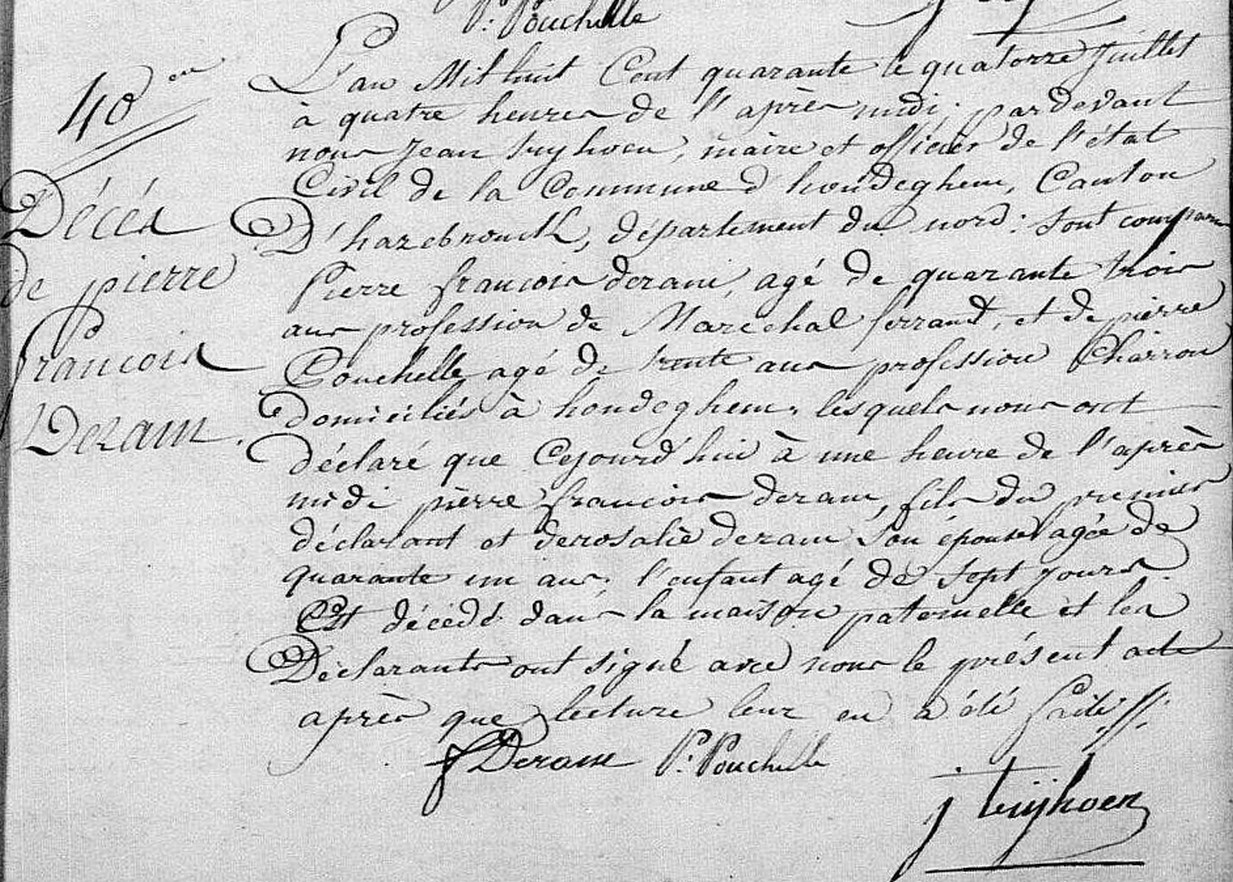 P. Pouchelle
40eme
Décés
de pierre
francois
Deram.
L'an Mil huit Cent quarante le quatorze Juillet
à quatre heures de l'après midi, pardevant
nous Jean tuyhoen, maire et officier de l'état
Civil de la Commune d'hondeghem, Canton
D'hazebrouck, département du nord: Sont comparu
Pierre francois deram, agé de quarante trois
ans profession de Maréchal ferrand, et de pierre
Pouchelle agé de trente ans profession Charron
Domiciliés à hondeghem, lesquels nous ont
Déclaré que Cejourd'hui à une heure de l'après
midi pierre francois deram, fils du premier
déclarant et de rosalie deram Son épouse agée de
quarante un ans, l'enfant agé de Sept Jours.
Est décédé dans la maison paternelle et les
Déclarants ont signé avec nous le présent acte
après que lecture leur en a été faite //.
f Deram P. Pouchelle
j tuyhoen